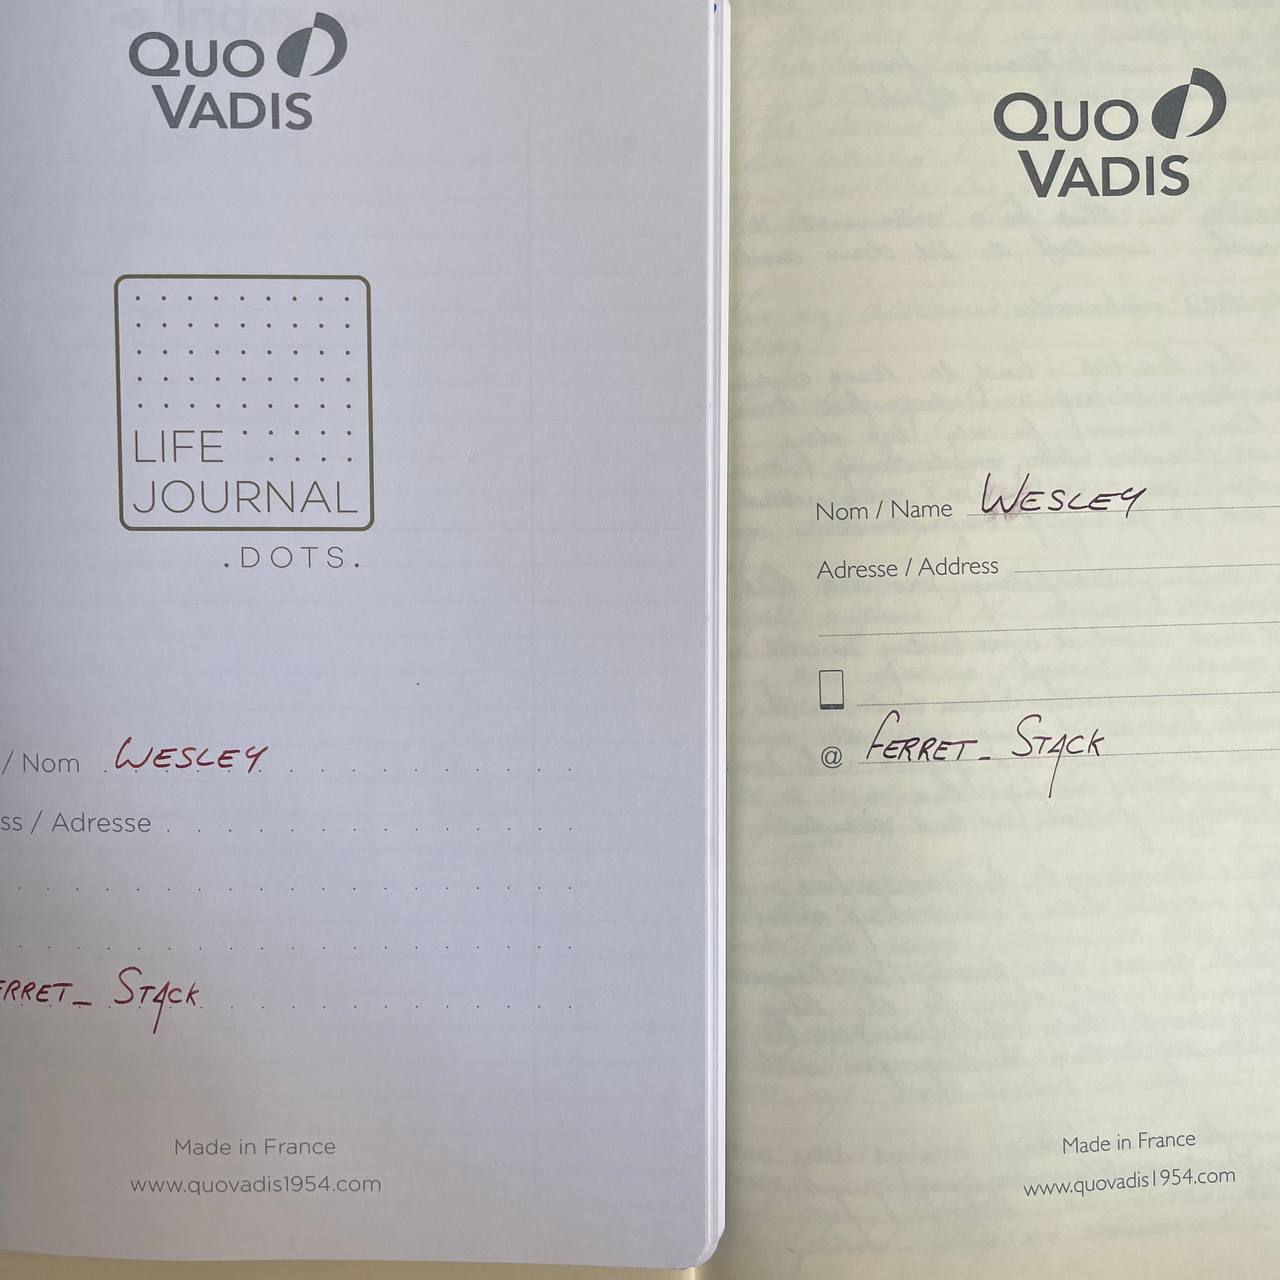 QUO
VADIS
LIFE
JOURNAL
.DOTS.
/ Nom WESLEY
ss / Adresse
ERRET_ STACK
Made in France
www.quovadis1954.com
QUO
VADIS
Nom / Name WESLEY
Adresse / Address
@ FERRET_ STACK
Made in France
www.quovadis1954.com